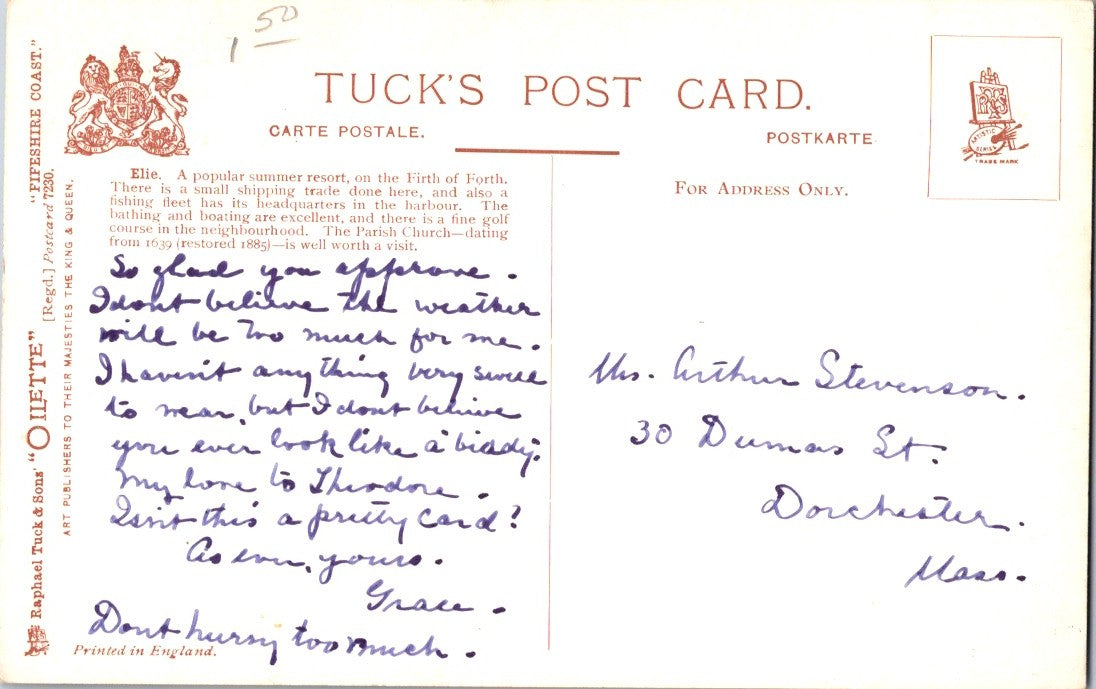 1 50
TUCK'S POST CARD.
CARTE POSTALE.
POSTKARTE
FOR ADDRESS ONLY.
ARTISTIC SERIES
TRADE MARK
"FIFESHIRE COAST."
[Regd.] Postcard 7230.
Raphael Tuck & Sons' "OILETTE"
ART PUBLISHERS TO THEIR MAJESTIES THE KING & QUEEN.
Elie. A popular summer resort, on the Firth of Forth.
There is a small shipping trade done here, and also a
fishing fleet has its headquarters in the harbour. The
bathing and boating are excellent, and there is a fine golf
course in the neighbourhood. The Parish Church—dating
from 1639 (restored 1885)—is well worth a visit.
So glad you approve.
I dont believe the weather
will be too much for me.
I haven't anything very swell
to wear, but I dont believe
you ever look like a 'biddy'.
My love to Theodore.
Isn't this a pretty card?
As ever, yours.
Grace.
Dont hurry too much.
Printed in England.
Mrs. Arthur Stevenson.
30 Dumas St.
Dorchester.
Mass.